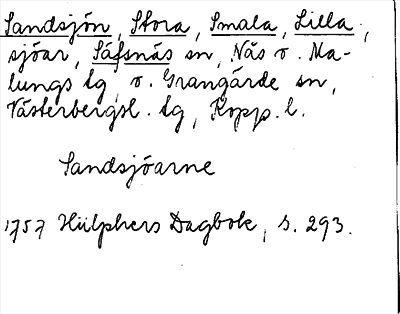 Sandsjön, Stora, Smala, Lilla,
sjöar, Säfsnäs sn, Nås o. Ma-
lungs tg, o. Grangärde sn,
Västerbergsl. tg, Kopp. l.
Sandsjöarne
1757 Hülphers Dagbok, s. 293.